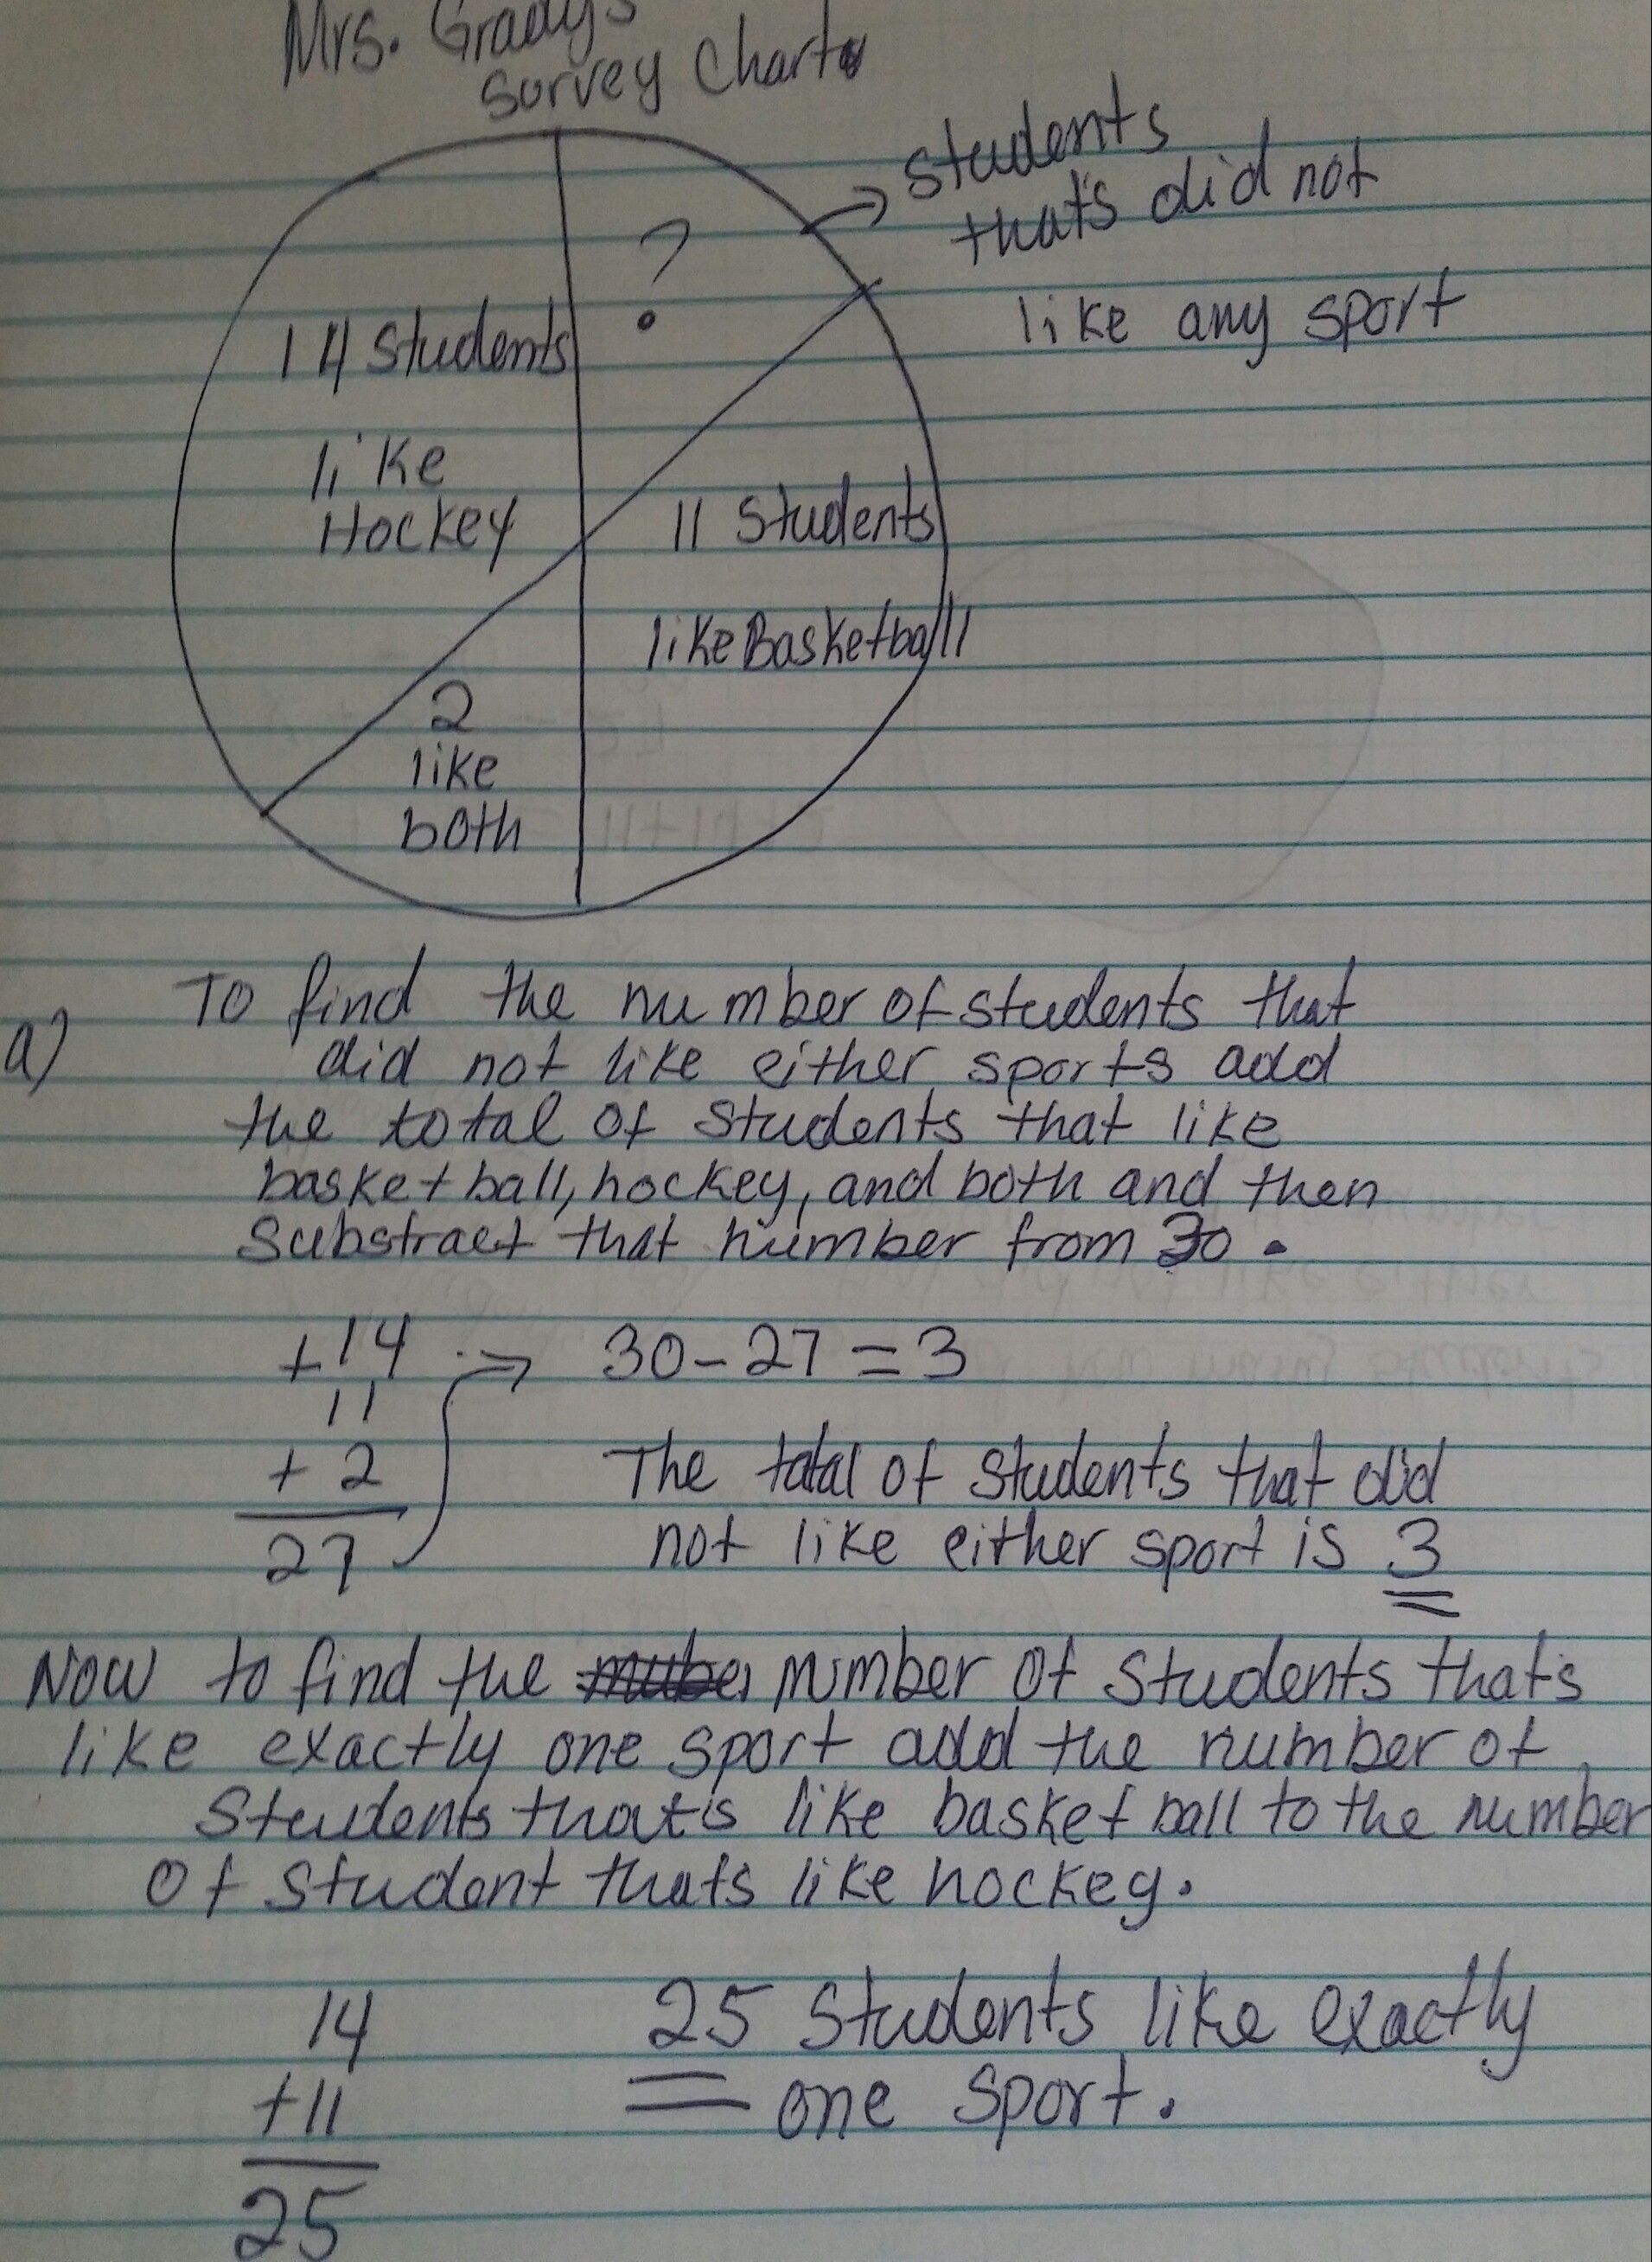 Mrs. Grady's
Survey Chart
students
that's did not
like any sport
?
14 students
like
Hockey
11 Students
like Basketball
2
like
both
a)
To find the number of students that
did not like either sports add
the total of students that like
basketball, hockey, and both and then
Substract that number from 30.
+14 → 30-27=3
11
+ 2
27
The total of students that did
not like either sport is 3
Now to find the number of students that's
like exactly one sport add the number of
Students that's like basketball to the number
of student that's like hockey.
14
+11
25
25 Students like exactly
one sport.